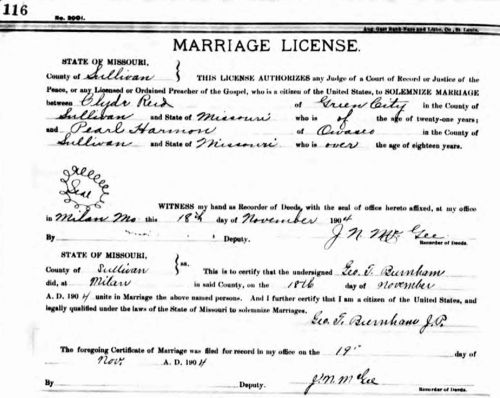 116
No. 3001.
MARRIAGE LICENSE.
STATE OF MISSOURI,
County of Sullivan
THIS LICENSE AUTHORIZES any Judge of a Court of Record or Justice of the
Peace, or any Licensed or Ordained Preacher of the Gospel, who is a citizen of the United States, to SOLEMNIZE MARRIAGE
between Clyde Reid of Green City in the County of
Sullivan and State of Missouri who is of the age of twenty-one years;
and Pearl Harmon of Owasco in the County of
Sullivan and State of Missouri who is over the age of eighteen years.
Seal
WITNESS my hand as Recorder of Deeds, with the seal of office hereto affixed, at my office
in Milan Mo this 18th day of November 1904
By Deputy. J. N. McGee
Recorder of Deeds.
STATE OF MISSOURI,
ss.
County of Sullivan This is to certify that the undersigned Geo. T. Burnham
did, at Milan in said County, on the 18th day of november
A. D. 1904 unite in Marriage the above named persons. And I further certify that I am a citizen of the United States, and
legally qualified under the laws of the State of Missouri to solemnize Marriages.
Geo. T. Burnham J.P.
The foregoing Certificate of Marriage was filed for record in my office on the 19 day of
Nov. A. D. 1904
By Deputy. J. N. McGee
Recorder of Deeds.